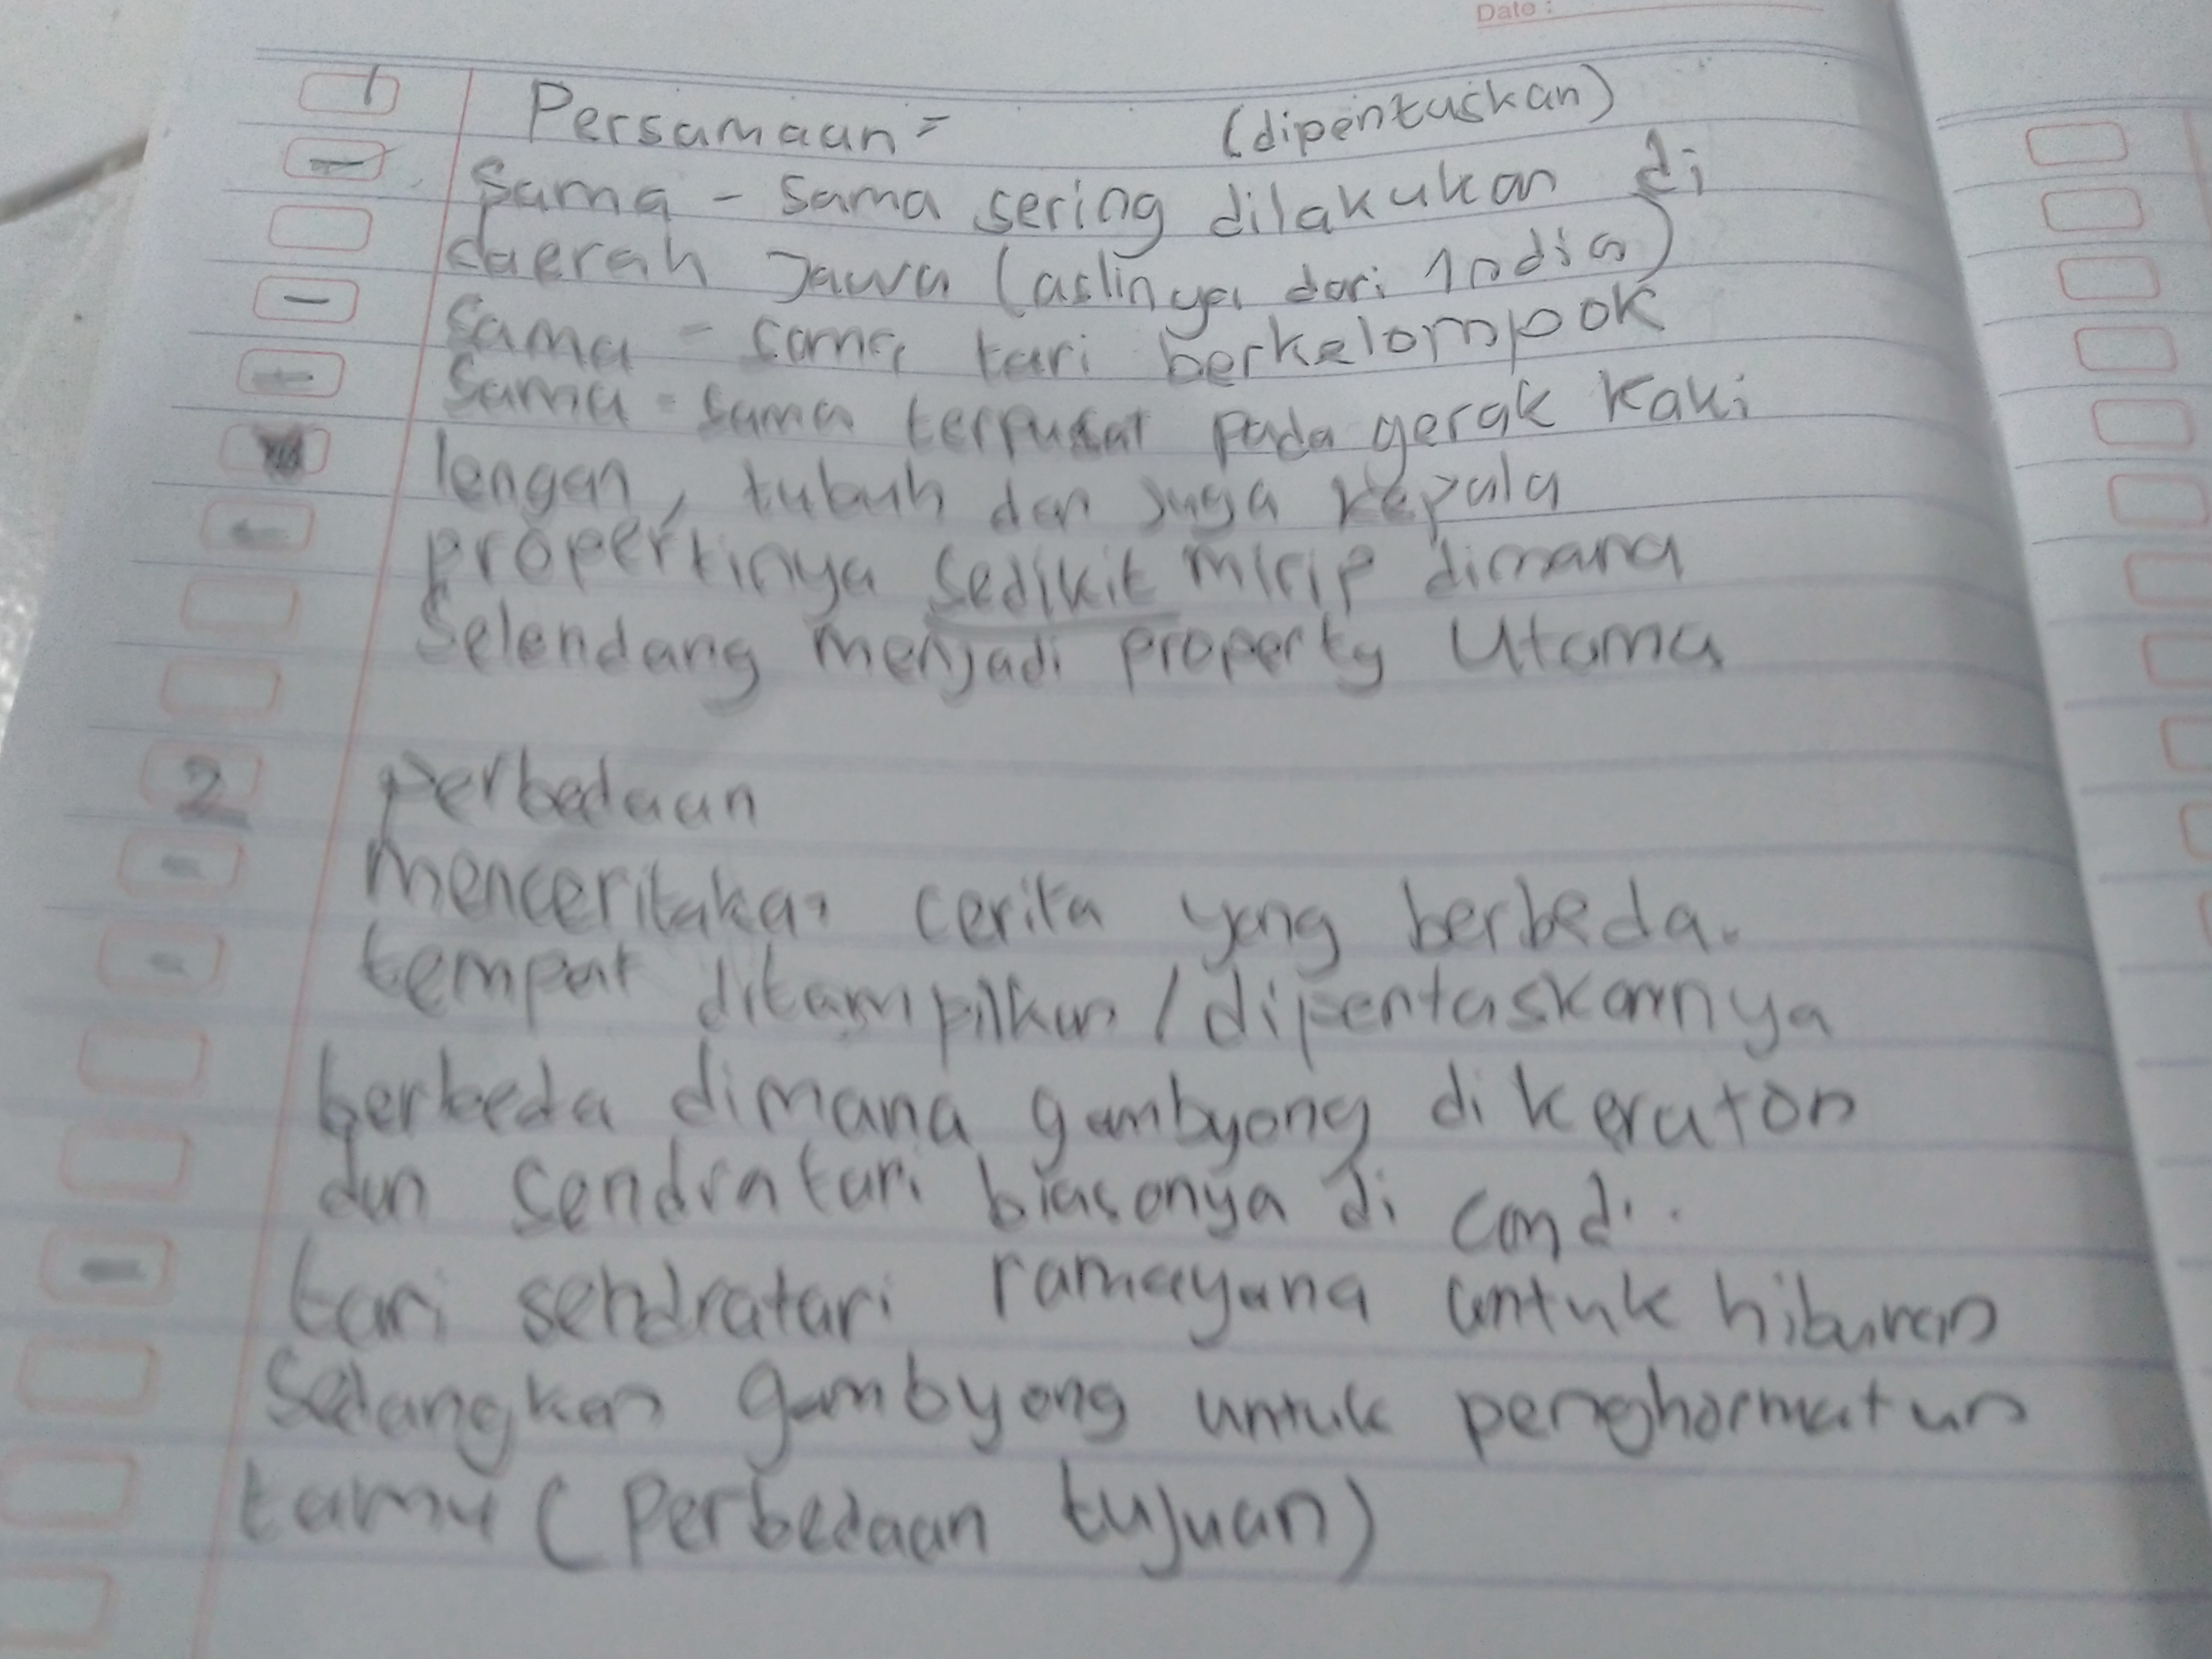 Date :
1 Persamaan = (dipentaskan)
- Sama - sama sering dilakukan di
daerah Jawa (aslinya dari India)
- Sama - sama tari berkelompok
- Sama - sama terpusat pada gerak kaki
lengan, tubuh dan juga kepala
- propertinya sedikit mirip dimana
Selendang menjadi property Utama
2 Perbedaan
- menceritakan cerita yang berbeda.
- tempat ditampilkan / dipentaskannya
berbeda dimana gambyong di keraton
dan sendratari biasanya di candi.
- tari sendratari ramayana untuk hiburan
Sedangkan gambyong untuk penghormatan
tamu (Perbedaan tujuan)